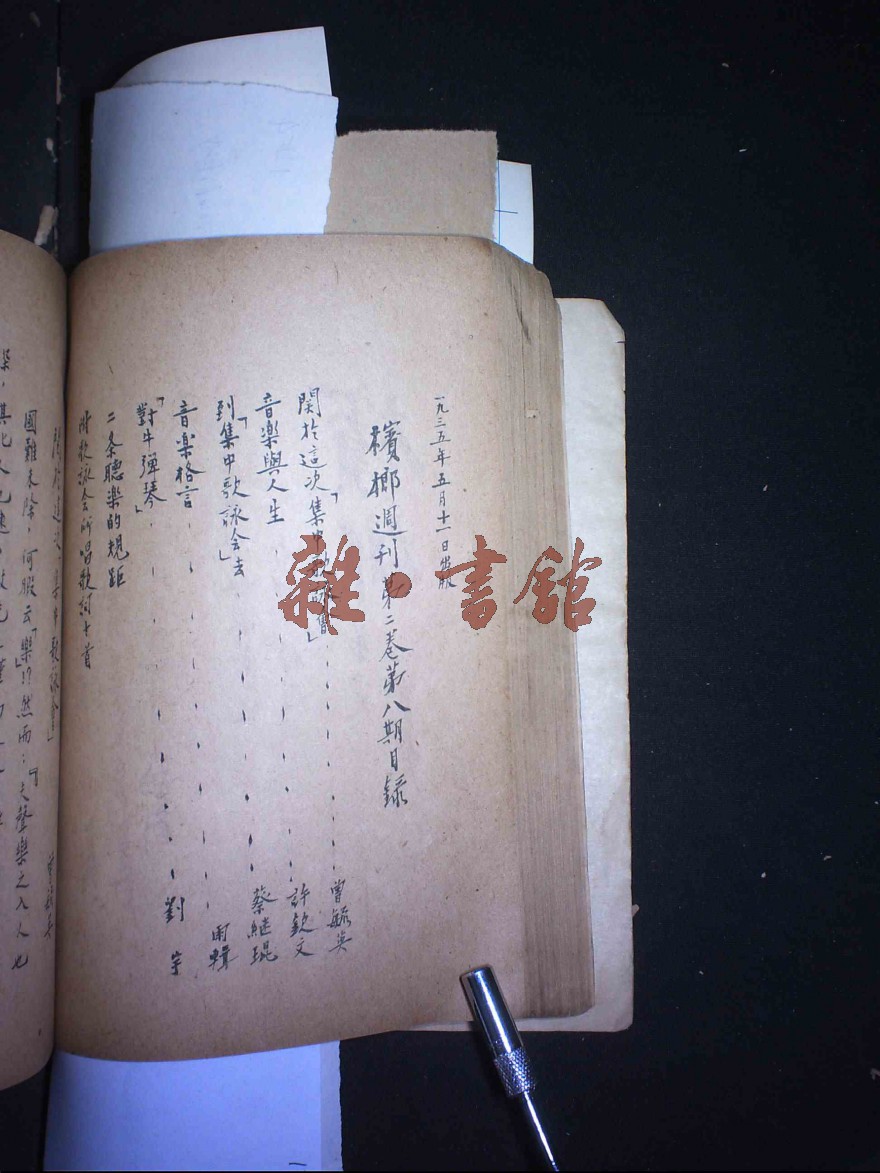 一九三五年五月十一日出版
檳榔週刊第二卷第八期目錄
關於這次「集中歌詠會」曾毓英
音樂與人生 許欽文
到「集中歌詠会」去 蔡継琨
音楽格言 雨輯
「對牛弾琴」劉宇
二条聽楽的規距
附歌詠会所唱歌詞十首
關於這次「集中歌詠會」
國難未除，何暇云「樂」!?然而：「夫聲樂之入人也
雜·書館